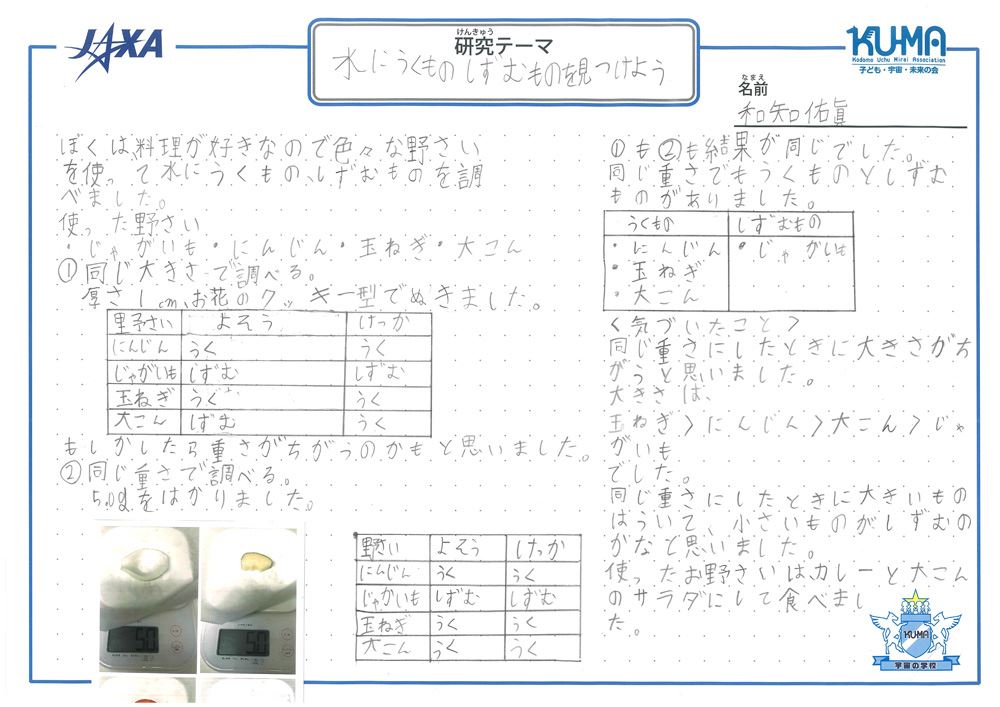 JAXA
けんきゅう
研究テーマ
水にうくものしずむものを見つけよう
KU-MA
Kodomo Uchu Mirai Association
子ども・宇宙・未来の会
なまえ
名前
和知佑眞
ぼくは、料理が好きなので色々な野さい
を使って水にうくもの、しずむものを調
べました。
使った野さい
・じゃがいも・にんじん・玉ねぎ・大こん
①同じ大きさで調べる。
厚さ1cm、お花のクッキー型でぬきました。
野さい よそう けっか
にんじん うく うく
じゃがいも しずむ しずむ
玉ねぎ うく うく
大こん しずむ うく
もしかしたら重さがちがうのかもと思いました。
②同じ重さで調べる。
5.0gをはかりました。
5.0 5.0
野さい よそう けっか
にんじん うく うく
じゃがいも しずむ しずむ
玉ねぎ うく うく
大こん うく うく
①も②も結果が同じでした。
同じ重さでもうくものとしずむ
ものがありました。
うくもの しずむもの
・にんじん ・じゃがいも
・玉ねぎ
・大こん
<気づいたこと>
同じ重さにしたときに大きさがち
がうと思いました。
大きさは、
玉ねぎ>にんじん>大こん>じゃ
がいも
でした。
同じ重さにしたときに大きいもの
はういて、小さいものがしずむの
かなと思いました。
使ったお野さいは、カレーと大こん
のサラダにして食べまし
た。
KUMA
宇宙の学校